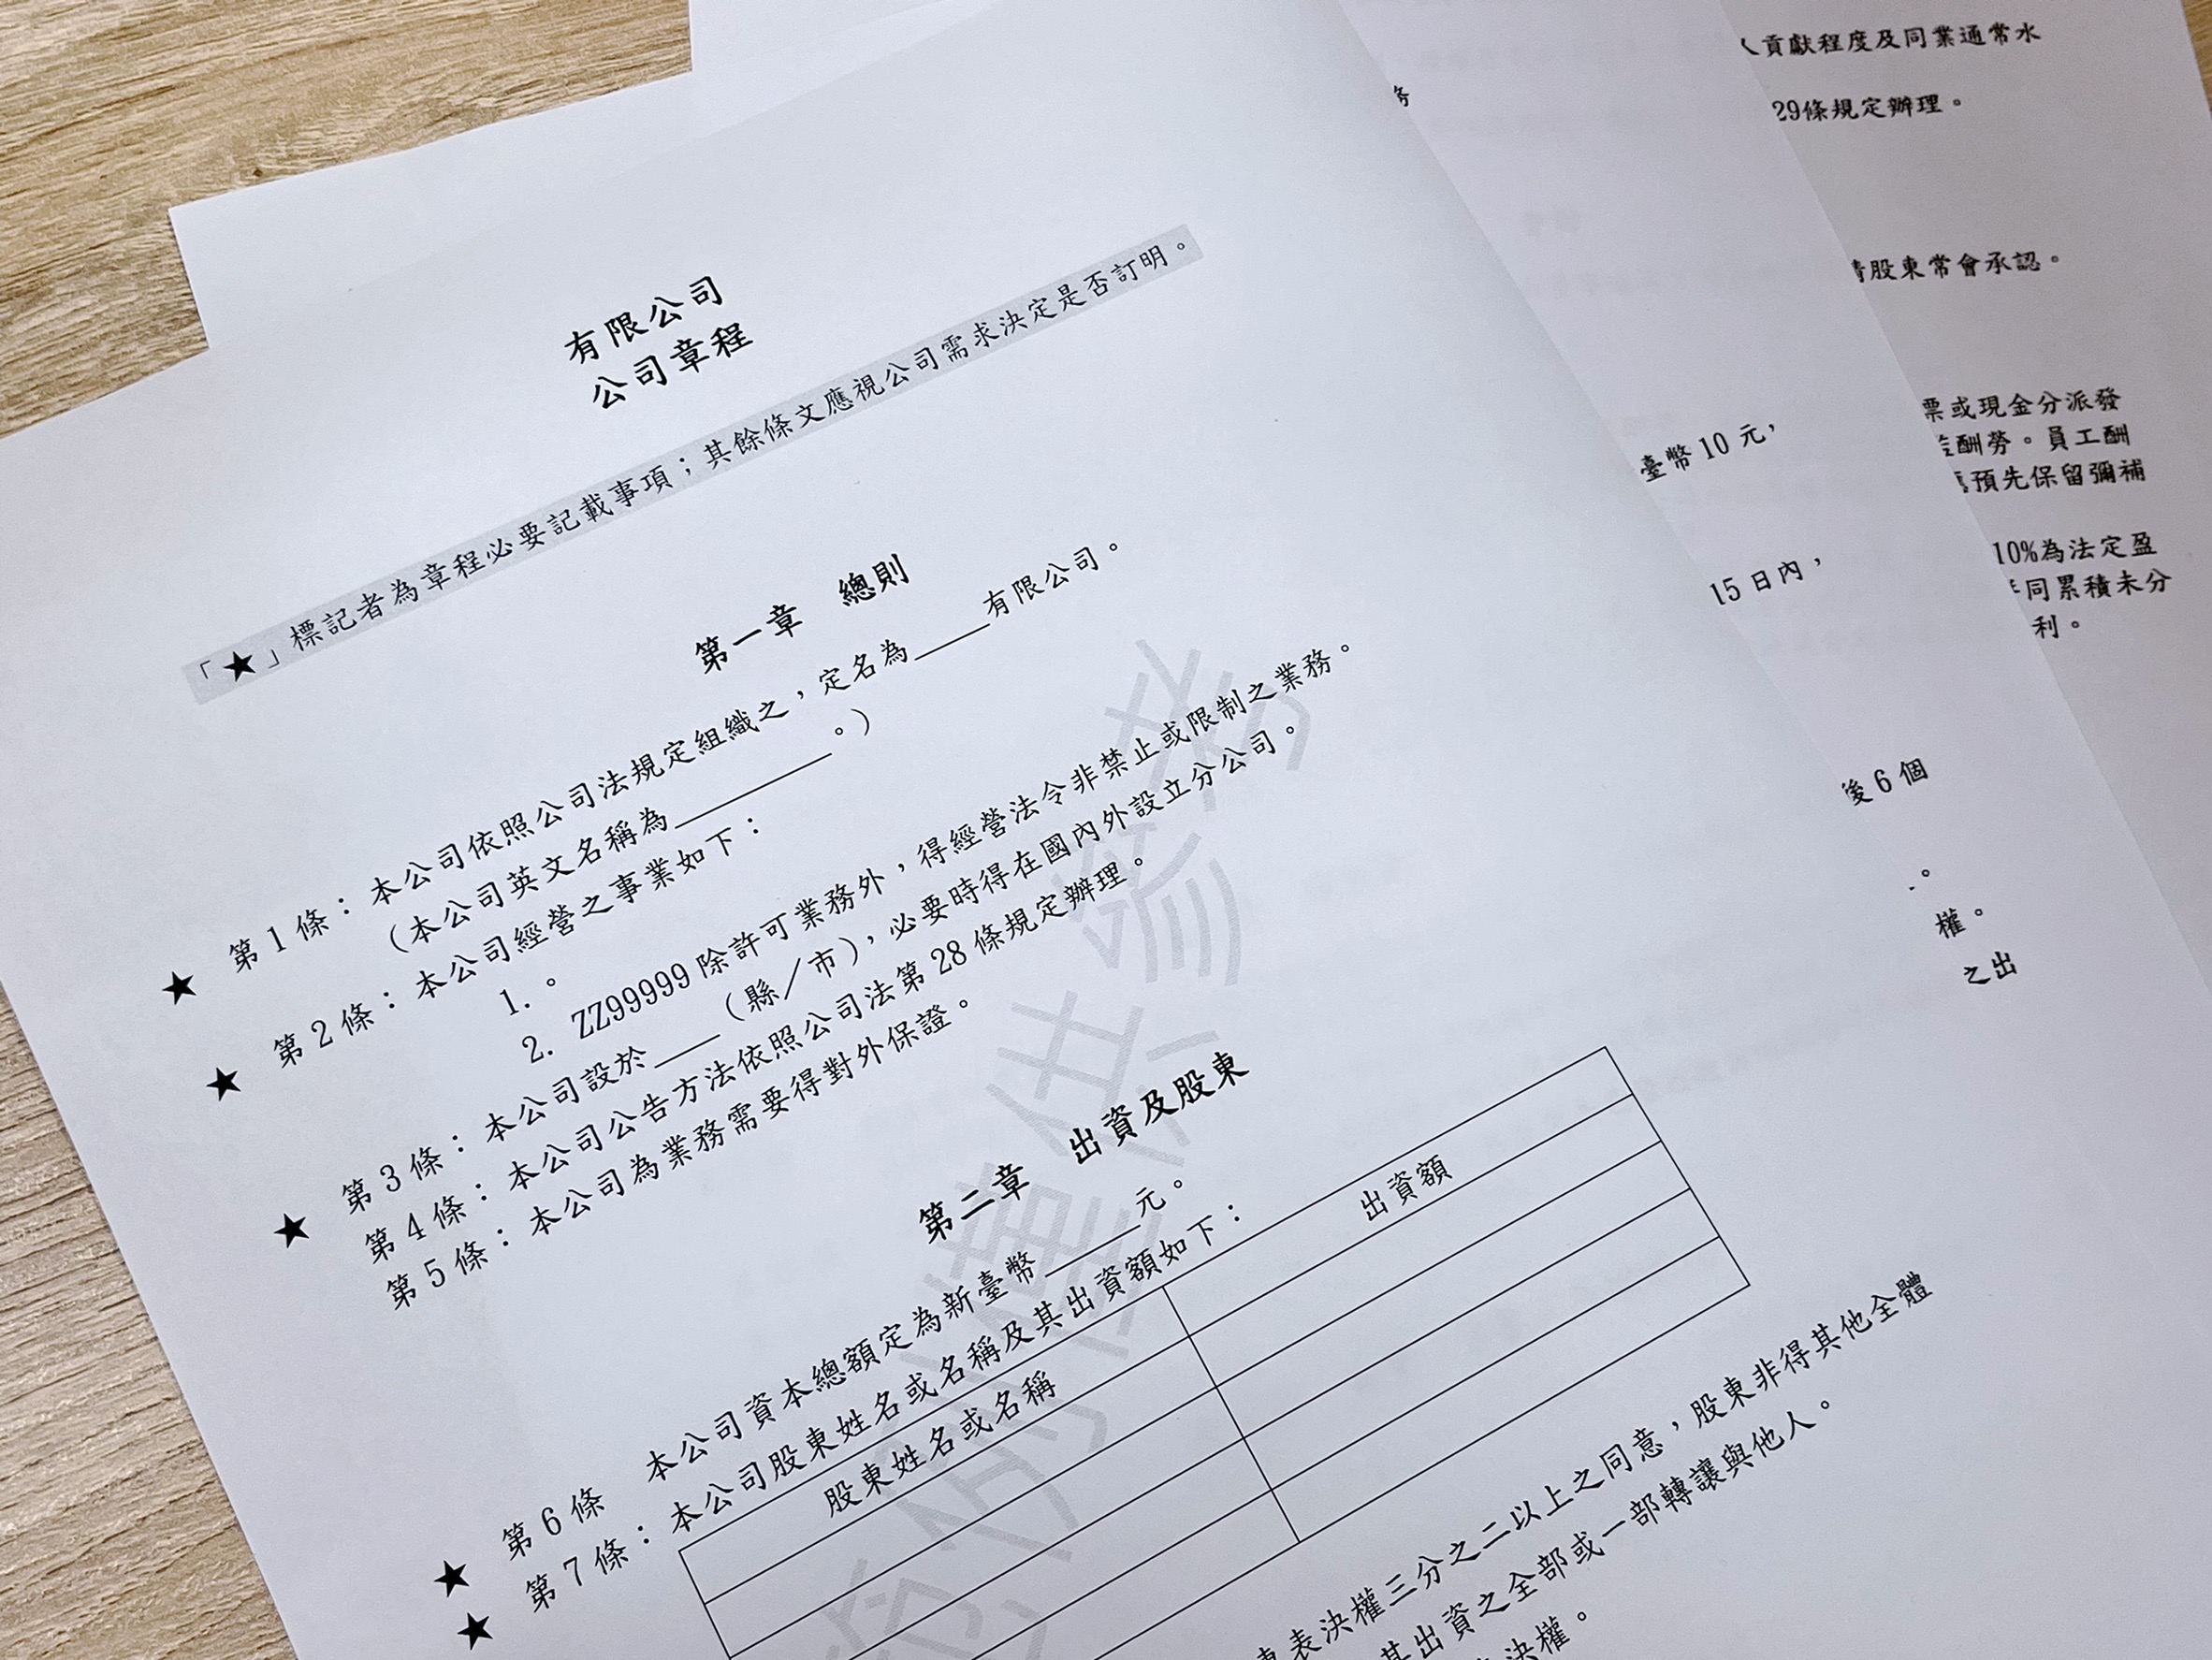 有限公司
公司章程
「★」標記者為章程必要記載事項；其餘條文應視公司需求決定是否訂明。
第一章 總則
★ 第 1 條：本公司依照公司法規定組織之，定名為_____有限公司。
（本公司英文名稱為__________。）
★ 第 2 條：本公司經營之事業如下：
1. 。
2. ZZ99999 除許可業務外，得經營法令非禁止或限制之業務。
★ 第 3 條：本公司設於____（縣／市），必要時得在國內外設立分公司。
第 4 條：本公司公告方法依照公司法第 28 條規定辦理。
第 5 條：本公司為業務需要得對外保證。
第二章 出資及股東
★ 第 6 條 本公司資本總額定為新臺幣______元。
★ 第 7 條：本公司股東姓名或名稱及其出資額如下：
股東姓名或名稱 出資額
表決權三分之二以上之同意，股東非得其他全體
其出資之全部或一部轉讓與他人。
決權。
範例僅供參考
務
臺幣 10 元，
15 日內，
後 6 個
。
權。
之出
人貢獻程度及同業通常水
29條規定辦理。
股東常會承認。
票或現金分派發
酬勞。員工酬
預先保留彌補
10%為法定盈
同累積未分
利。